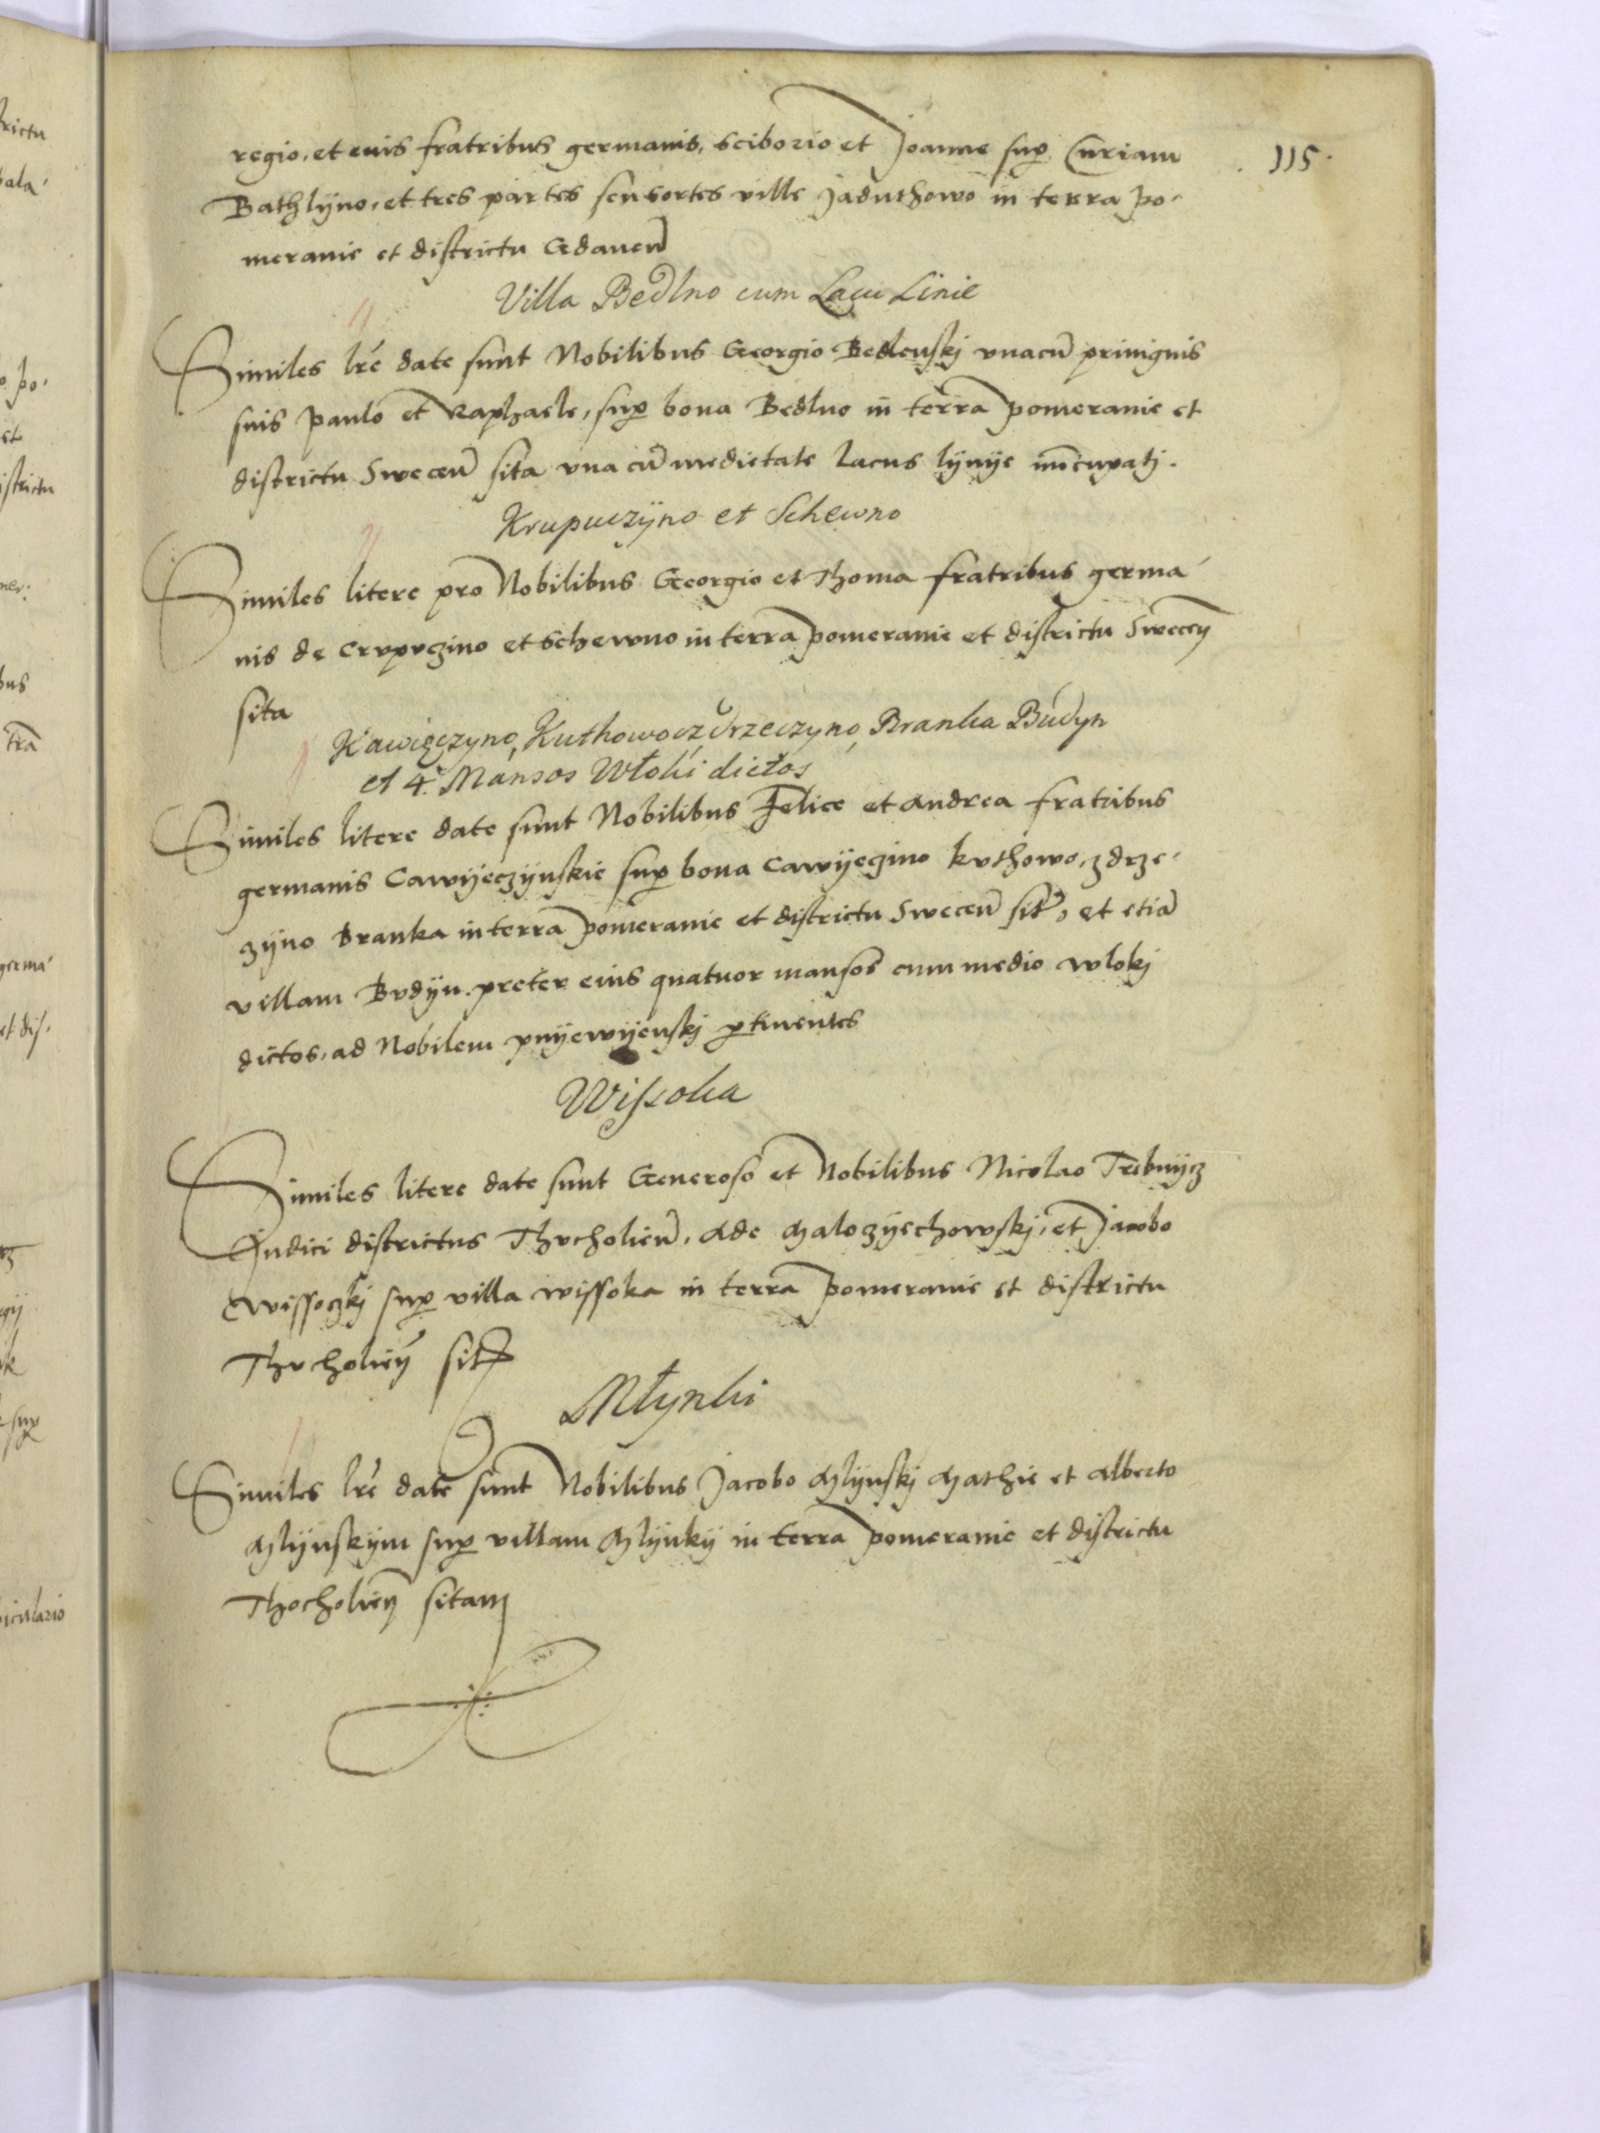 115.
regio, et euis fratribus germanis, Sciborio et Joanne sup Curiam
Bathlyno, et tres partes seu sortes ville Jaduthowo in terra po-
meranie et districtu Gdanen
Villa Bedlno cum Lacu Linie
Similes lre date sunt Nobilibus Georgio Bedlenskj vnacu priuignis
suis Paulo et Raphaele, sup bona Bedlno in terra pomeranie et
districtu Swecen sita vna cu medietate lacus lynye nucupatj.
Krupuczyno et Schewno
Similes litere pro Nobilibus Georgio et Thoma fratribus germa
nis de Crvpvczino et Schewno in terra pomeranie et districtu Swecen
sita
Kawięczyno, Kuthowo, Zdrzeczyno, Branka Budyn
et 4. Mansos Włoki dictos
Similes litere date sunt Nobilibus Felice et Andrea fratribus
germanis Cawyeczynskie sup bona Cawyeczino kvthowo, zdrze-
zyno Branka in terra pomeranie et districtu Swecen sit, et etia
villam Bvdyn. preter eius quatuor mansos cum medio wlokj
dictos, ad Nobilem pnyewyenskj ptinentes
Wissoka
Similes litere date sunt Generoso et Nobilibus Nicolao Trebnycz
Judici districtus Thvcholien, Ade Maloczyechowskj, et Jacobo
Wissoczkj sup villa wissoka in terra pomeranie et districtu
Thvcholien sit
Młynki
Similes lre date sunt Nobilibus Jacobo Mlynskj Mathie et Alberto
Mlynskym sup villam Mlynky in terra pomeranie et districtu
Thocholien sitam